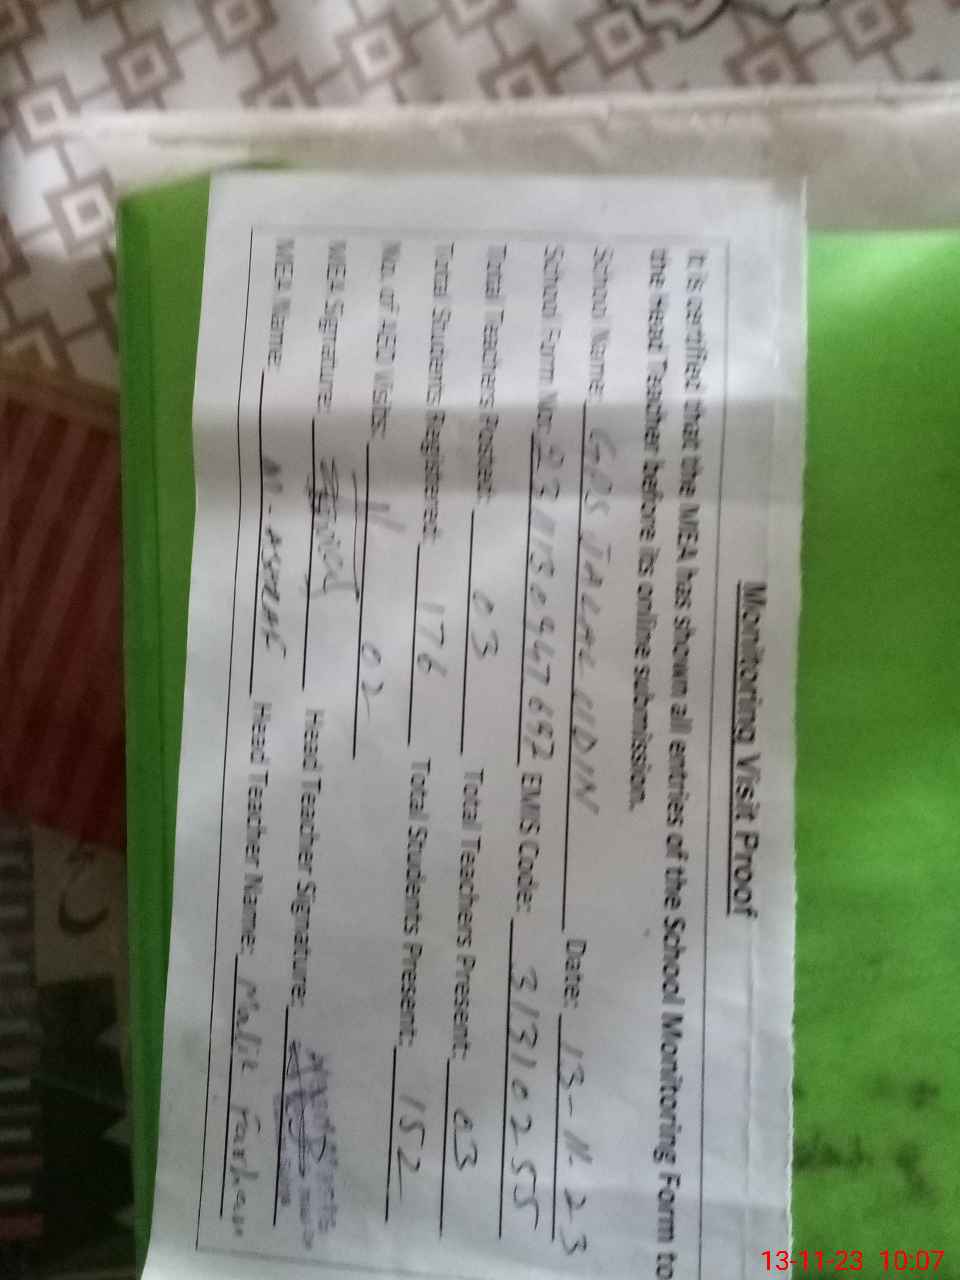 Monitoring Visit Proof
It is certified that the MEA has shown all entries of the School Monitoring Form to
the Head Teacher before its online submission.
School Name: GPS JALAL UDIN Date: 13-11-23
School Form No: 2311130947692 EMIS Code: 31310255
Total Teachers Posted: 03 Total Teachers Present: 03
Total Students Registered: 176 Total Students Present: 152
No. of AEO Visits: 02
MEA Signature: Head Teacher Signature:
MEA Name: M-ASHRAF Head Teacher Name: Malik Farhan
13-11-23 10:07